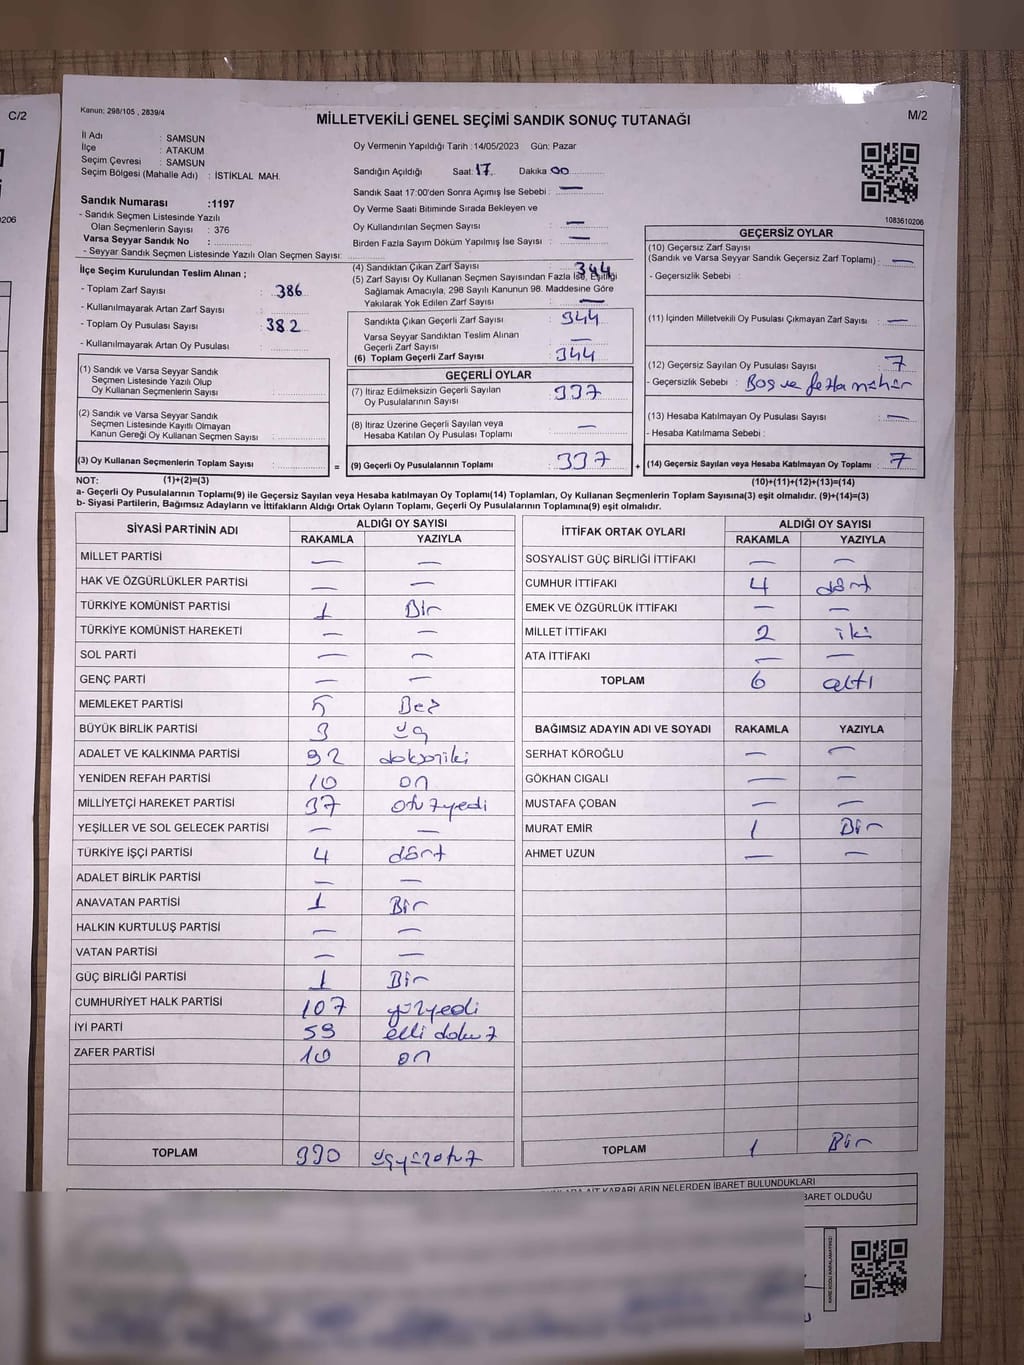 C/2
Kanun: 298/105 , 2839/4
MİLLETVEKİLİ GENEL SEÇİMİ SANDIK SONUÇ TUTANAĞI
M/2
İl Adı : SAMSUN
İlçe : ATAKUM
Seçim Çevresi : SAMSUN
Seçim Bölgesi (Mahalle Adı) : İSTİKLAL MAH.
Sandık Numarası :1197
- Sandık Seçmen Listesinde Yazılı
Olan Seçmenlerin Sayısı : 376
Varsa Seyyar Sandık No :
- Seyyar Sandık Seçmen Listesinde Yazılı Olan Seçmen Sayısı:
Oy Vermenin Yapıldığı Tarih :14/05/2023 Gün: Pazar
Sandığın Açıldığı Saat: 17 Dakika 00
Sandık Saat 17:00'den Sonra Açımış İse Sebebi : —
Oy Verme Saati Bitiminde Sırada Bekleyen ve
Oy Kullandırılan Seçmen Sayısı : —
Birden Fazla Sayım Döküm Yapılmış İse Sayısı : —
1083610206
206
İlçe Seçim Kurulundan Teslim Alınan ;
- Toplam Zarf Sayısı : 386
- Kullanılmayarak Artan Zarf Sayısı :
- Toplam Oy Pusulası Sayısı : 382
- Kullanılmayarak Artan Oy Pusulası :
(1) Sandık ve Varsa Seyyar Sandık
Seçmen Listesinde Yazılı Olup
Oy Kullanan Seçmenlerin Sayısı :
(2) Sandık ve Varsa Seyyar Sandık
Seçmen Listesinde Kayıtlı Olmayan
Kanun Gereği Oy Kullanan Seçmen Sayısı :
(3) Oy Kullanan Seçmenlerin Toplam Sayısı :
(1)+(2)=(3)
(4) Sandıktan Çıkan Zarf Sayısı : 344
(5) Zarf Sayısı Oy Kullanan Seçmen Sayısından Fazla İse, Eşitliği
Sağlamak Amacıyla, 298 Sayılı Kanunun 98. Maddesine Göre
Yakılarak Yok Edilen Zarf Sayısı : —
Sandıkta Çıkan Geçerli Zarf Sayısı : 344
Varsa Seyyar Sandıktan Teslim Alınan
Geçerli Zarf Sayısı : —
(6) Toplam Geçerli Zarf Sayısı : 344
GEÇERLİ OYLAR
(7) İtiraz Edilmeksizin Geçerli Sayılan
Oy Pusulalarının Sayısı : 337
(8) İtiraz Üzerine Geçerli Sayılan veya
Hesaba Katılan Oy Pusulası Toplamı : —
= (9) Geçerli Oy Pusulalarının Toplamı : 337
GEÇERSİZ OYLAR
(10) Geçersiz Zarf Sayısı
(Sandık ve Varsa Seyyar Sandık Geçersiz Zarf Toplamı) : —
- Geçersizlik Sebebi :
(11) İçinden Milletvekili Oy Pusulası Çıkmayan Zarf Sayısı : —
(12) Geçersiz Sayılan Oy Pusulası Sayısı : 7
- Geçersizlik Sebebi : Boş ve fazla mühür
(13) Hesaba Katılmayan Oy Pusulası Sayısı : —
- Hesaba Katılmama Sebebi :
+ (14) Geçersiz Sayılan veya Hesaba Katılmayan Oy Toplamı : 7
(10)+(11)+(12)+(13)=(14)
NOT:
a- Geçerli Oy Pusulalarının Toplamı(9) ile Geçersiz Sayılan veya Hesaba katılmayan Oy Toplamı(14) Toplamları, Oy Kullanan Seçmenlerin Toplam Sayısına(3) eşit olmalıdır. (9)+(14)=(3)
b- Siyasi Partilerin, Bağımsız Adayların ve İttifakların Aldığı Ortak Oyların Toplamı, Geçerli Oy Pusulalarının Toplamına(9) eşit olmalıdır.
SİYASİ PARTİNİN ADI ALDIĞI OY SAYISI
RAKAMLA YAZIYLA
MİLLET PARTİSİ — —
HAK VE ÖZGÜRLÜKLER PARTİSİ — —
TÜRKİYE KOMÜNİST PARTİSİ 1 Bir
TÜRKİYE KOMÜNİST HAREKETİ — —
SOL PARTİ — —
GENÇ PARTİ — —
MEMLEKET PARTİSİ 5 Beş
BÜYÜK BİRLİK PARTİSİ 3 üç
ADALET VE KALKINMA PARTİSİ 92 doksaniki
YENİDEN REFAH PARTİSİ 10 on
MİLLİYETÇİ HAREKET PARTİSİ 37 otuzyedi
YEŞİLLER VE SOL GELECEK PARTİSİ — —
TÜRKİYE İŞÇİ PARTİSİ 4 dört
ADALET BİRLİK PARTİSİ — —
ANAVATAN PARTİSİ 1 Bir
HALKIN KURTULUŞ PARTİSİ — —
VATAN PARTİSİ — —
GÜÇ BİRLİĞİ PARTİSİ 1 Bir
CUMHURİYET HALK PARTİSİ 107 yüzyedi
İYİ PARTİ 59 elli dokuz
ZAFER PARTİSİ 10 on
TOPLAM 330 üçyüzotuz
İTTİFAK ORTAK OYLARI ALDIĞI OY SAYISI
RAKAMLA YAZIYLA
SOSYALİST GÜÇ BİRLİĞİ İTTİFAKI — —
CUMHUR İTTİFAKI 4 dört
EMEK VE ÖZGÜRLÜK İTTİFAKI — —
MİLLET İTTİFAKI 2 iki
ATA İTTİFAKI — —
TOPLAM 6 altı
BAĞIMSIZ ADAYIN ADI VE SOYADI RAKAMLA YAZIYLA
SERHAT KÖROĞLU — —
GÖKHAN CIGALI — —
MUSTAFA ÇOBAN — —
MURAT EMİR 1 Bir
AHMET UZUN — —
TOPLAM 1 Bir
KARARLARIN NELERDEN İBARET BULUNDUKLARI
BARET OLDUĞU